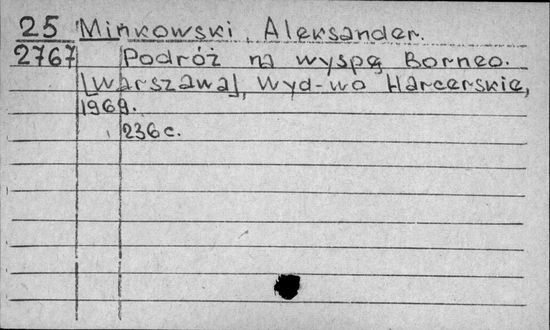 25 Minkowski, Aleksander.
2767 Podróż na wyspę Borneo.
[Warszawa], Wyd-wo Harcerskie,
1969.
236 c.